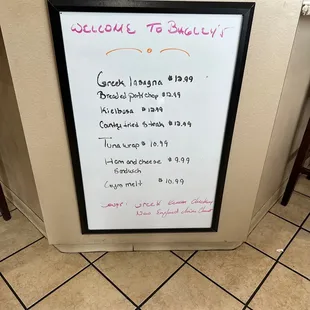 WELCOME To BAGLEY's
Greek lasagna $12.99
Breaded porkchop $12.99
Kielbasa $12.99
Contry fried steak $12.99
Tuna wrap $10.99
Ham and cheese $9.99
sandwich
Gyro melt $10.99
Soup: Greek Lemon Chicken
New England Clam Chowd